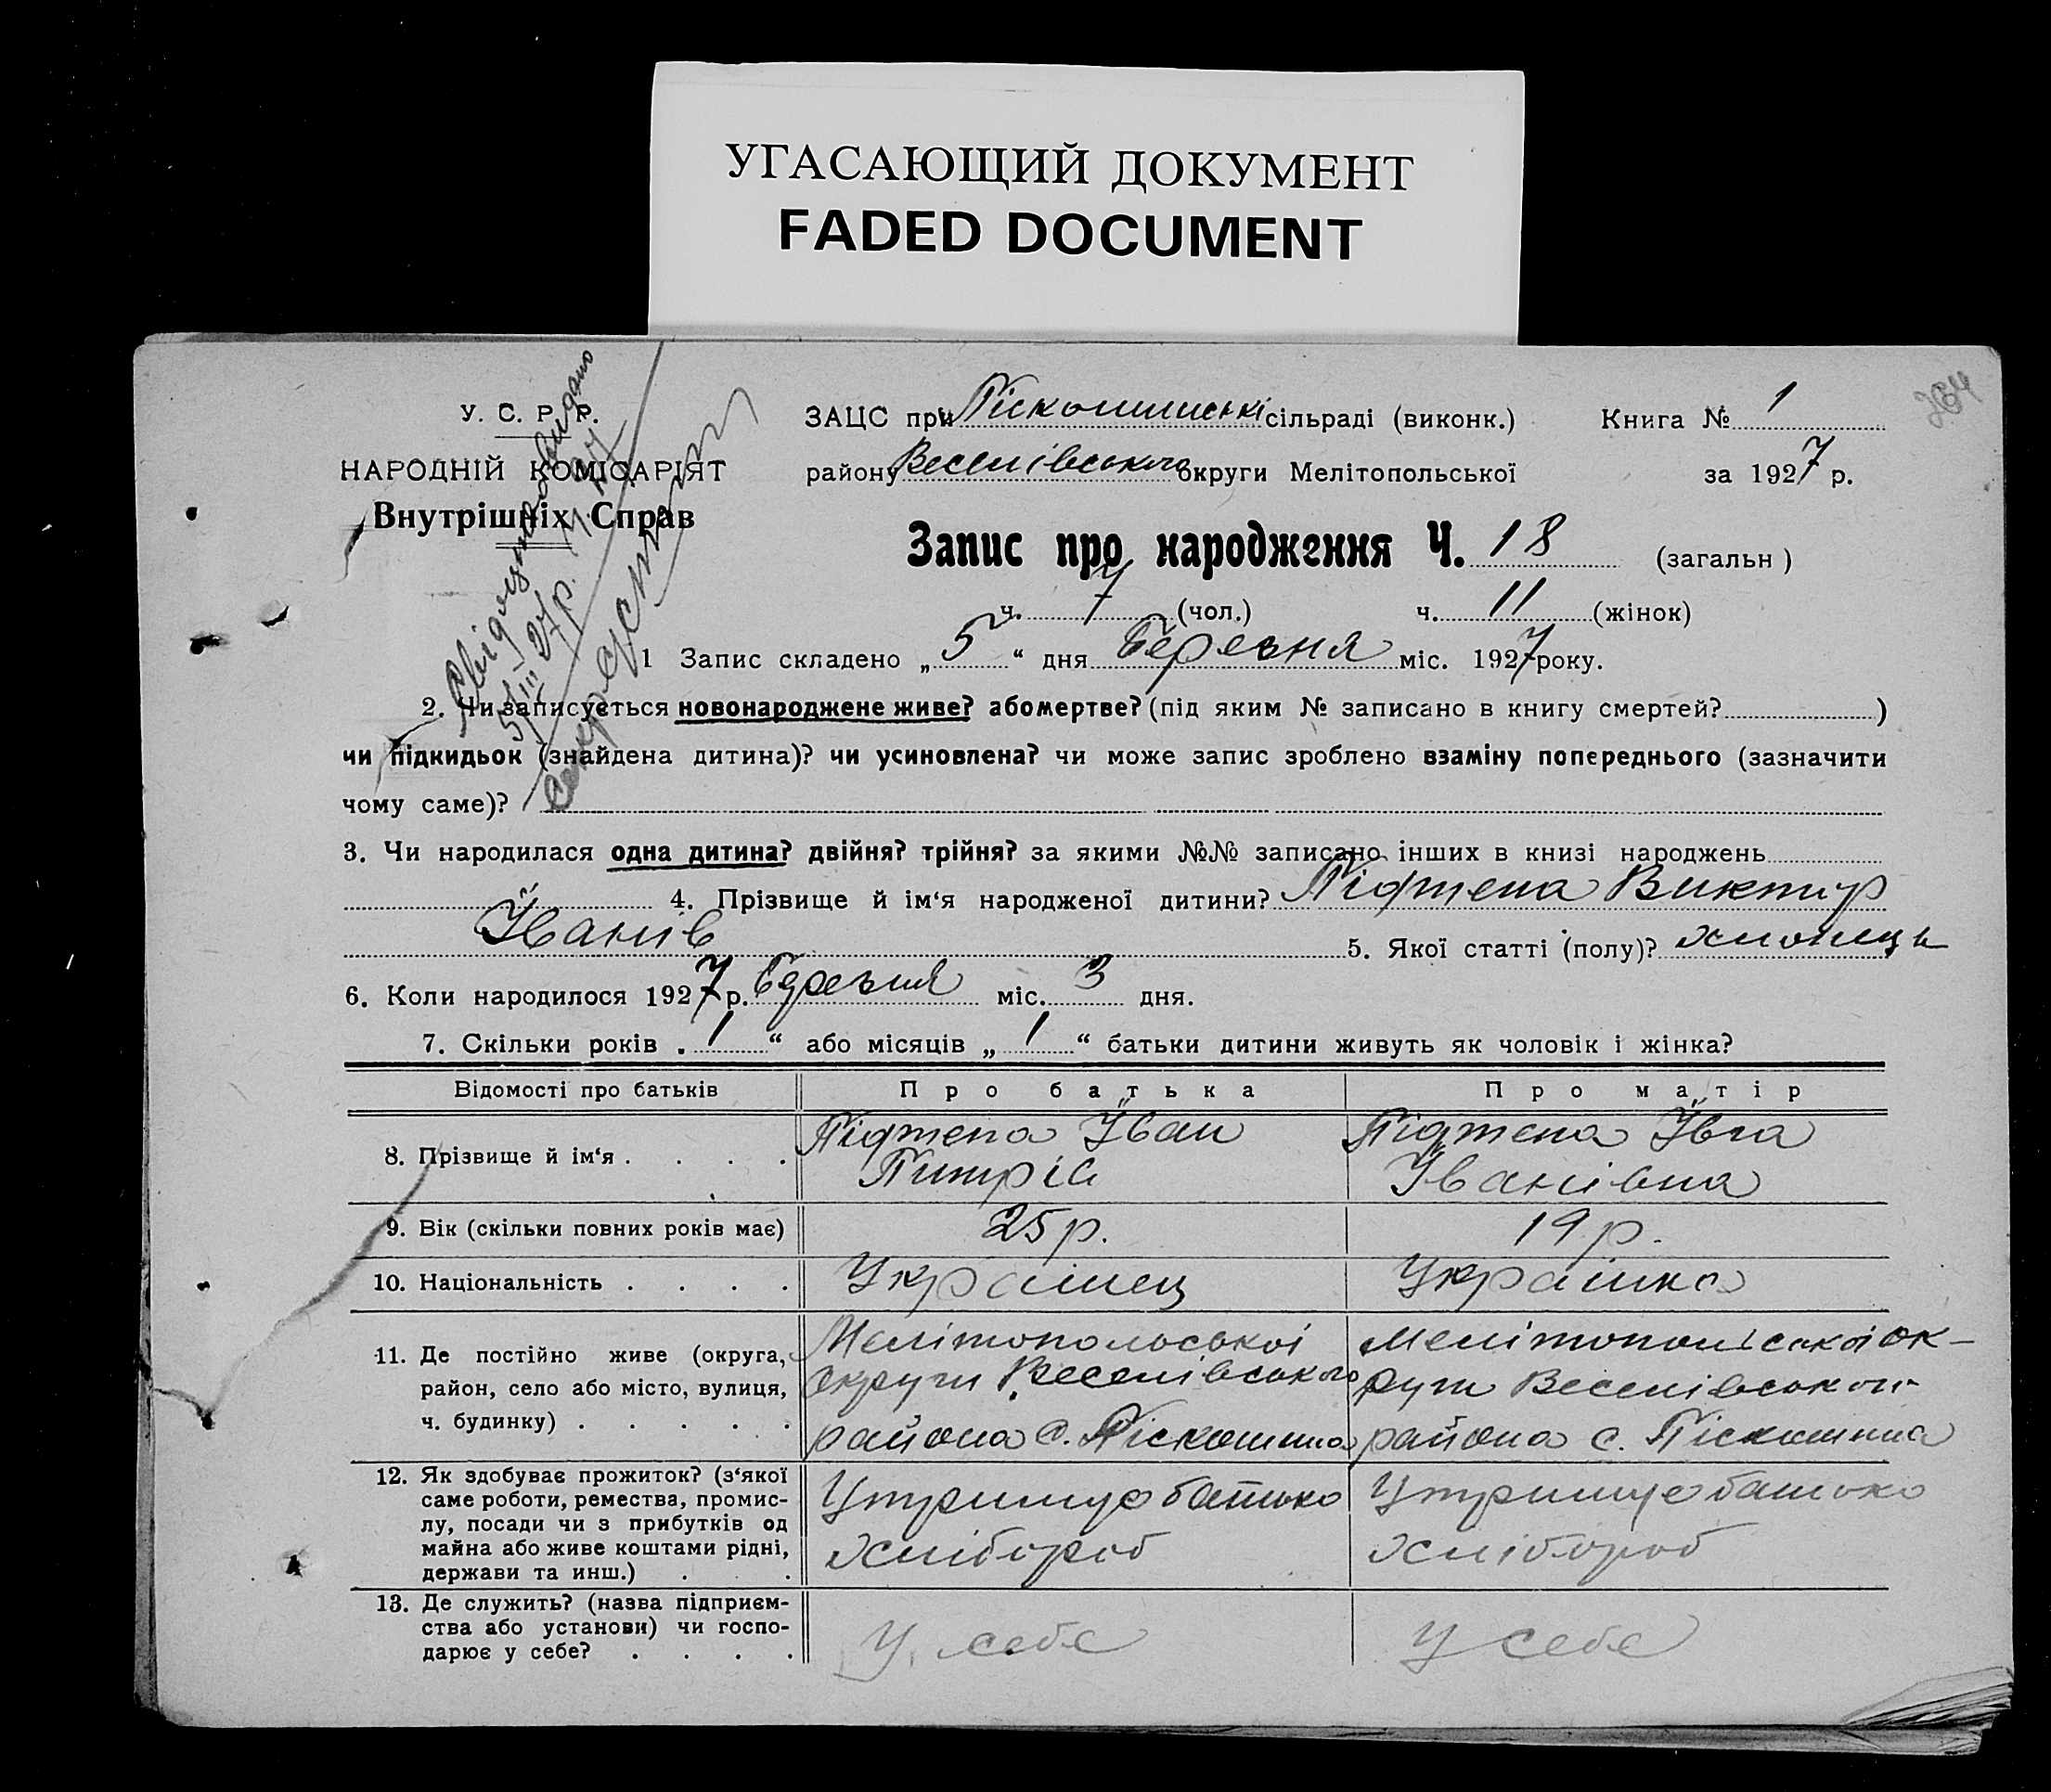 УГАСАЮЩИЙ ДОКУМЕНТ
FADED DOCUMENT
У. С. Р. Р.
НАРОДНІЙ КОМІСАРІЯТ
Внутрішніх Справ
Свідоцтво видано
5/III 27 р.
ЗАЦС при Піскошинські сільраді (виконк.) Книга № 1
району Веселівського округи Мелітопольської за 1927 р.
Запис про народження Ч. 18 (загальн)
ч. 7 (чол.) ч. 11 (жінок)
1 Запис складено „ 5 “ дня Березня міс. 1927 року.
2. Чи записується новонароджене живе? або мертве? (під яким № записано в книгу смертей? )
чи підкидьок (знайдена дитина)? чи усиновлена? чи може запис зроблено взаміну попереднього (зазначити
чому саме)?
3. Чи народилася одна дитина? двійня? трійня? за якими №№ записано інших в книзі народжень
4. Прізвище й ім‘я народженої дитини? Підтепа Виктир
Іванів 5. Якої статті (полу)? хлопець
6. Коли народилося 1927 р. Березня міс. 3 дня.
7. Скільки років „ 1 “ або місяців „ 1 “ батьки дитини живуть як чоловік і жінка?
Відомості про батьків Про батька Про матір
8. Прізвище й ім‘я . . . . Підтепа Іван Підтепа Івга
Питрів Іванівна
9. Вік (скільки повних років має) 25 р. 19 р.
10. Національність . . . . Українец Українка
11. Де постійно живе (округа, район, село або місто, вулиця, ч. будинку) . . . . .
Мелітопольської
округи Веселівського
района с. Піскошина
Мелітопольської ок-
руги Веселівського
района с. Піскошина
12. Як здобуває прожиток? (з‘якої
саме роботи, ремества, промис-
лу, посади чи з прибутків од
майна або живе коштами рідні,
держави та инш.) . .
Утримує батько
хлібороб
Утримує батько
хлібороб
13. Де служить? (назва підприєм-
ства або установи) чи госпо-
дарює у себе? . . . .
У себе
У себе